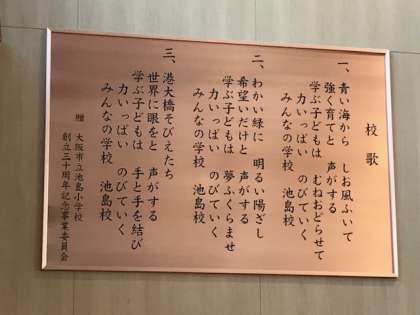 校歌
一、青い海から　しお風ふいて
強く育てと　声がする
学ぶ子どもは　むねおどらせて
力いっぱい　のびていく
みんなの学校　池島校
二、わかい緑に　明るい陽ざし
希望いだけと　声がする
学ぶ子どもは　夢ふくらませ
力いっぱい　のびていく
みんなの学校　池島校
三、港大橋そびえたち
世界に眼をと　声がする
学ぶ子どもは　手と手を結び
力いっぱい　のびていく
みんなの学校　池島校
贈　大阪市立池島小学校
創立三十周年記念事業委員会